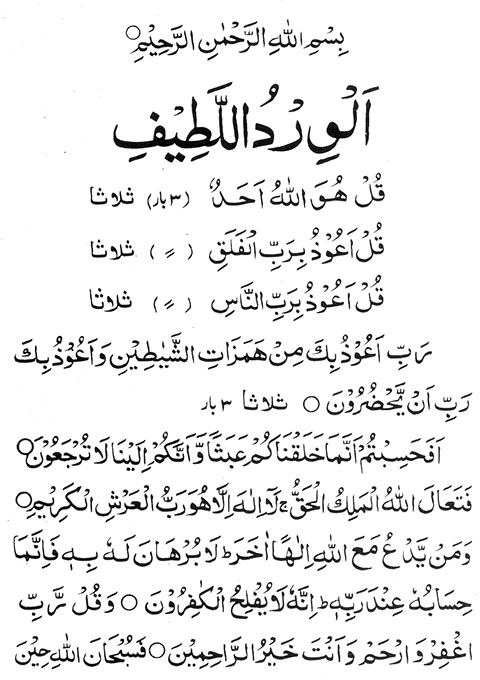 بِسْمِ اللهِ الرَّحْمٰنِ الرَّحِيْمِ ○
اَلْوِرْدُ اللَّطِيْفِ
قُلْ هُوَ اللهُ اَحَدٌ (۳ بار) ثلاثا
قُلْ اَعُوْذُ بِرَبِّ الْفَلَقِ ( 〃 ) ثلاثا
قُلْ اَعُوْذُ بِرَبِّ النَّاسِ ( 〃 ) ثلاثا
رَبِّ اَعُوْذُ بِكَ مِنْ هَمَزَاتِ الشَّيٰطِيْنِ وَاَعُوْذُ بِكَ
رَبِّ اَنْ يَّحْضُرُوْنَ ○ ثلاثا ۳ بار
اَفَحَسِبْتُمْ اَنَّمَا خَلَقْنَاكُمْ عَبَثًا وَّاَنَّكُمْ اِلَيْنَا لَا تُرْجَعُوْنَ ○
فَتَعَالَ اللهُ الْمَلِكُ الْحَقُّ ج لَآ اِلٰهَ اِلَّا هُوَ رَبُّ الْعَرْشِ الْكَرِيْمِ ○
وَمَنْ يَّدْعُ مَعَ اللهِ اِلٰهًا اٰخَرَ ط لَا بُرْهَانَ لَهٗ بِهٖ فَاِنَّمَا
حِسَابُهٗ عِنْدَ رَبِّهٖ ط اِنَّهٗ لَا يُفْلِحُ الْكٰفِرُوْنَ ○ وَقُلْ رَّبِّ
اغْفِرْ وَارْحَمْ وَاَنْتَ خَيْرُ الرَّاحِمِيْنَ ○ فَسُبْحَانَ اللهِ حِيْنَ